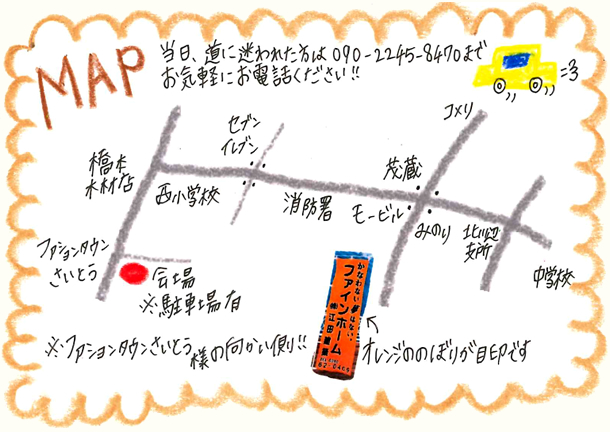 MAP
当日、道に迷われた方は 090-2245-8470まで
お気軽にお電話ください!!
コメリ
セブン
イレブン
橋本
木材店
西小学校
消防署
茂蔵
モービル
みのり
北川辺
支所
中学校
ファションタウン
さいとう
会場
※駐車場有
かなわない夢はない
ファインホーム
㈱江田建設
62-0465
オレンジののぼりが目印です
※ファションタウンさいとう 様の向かい側!!